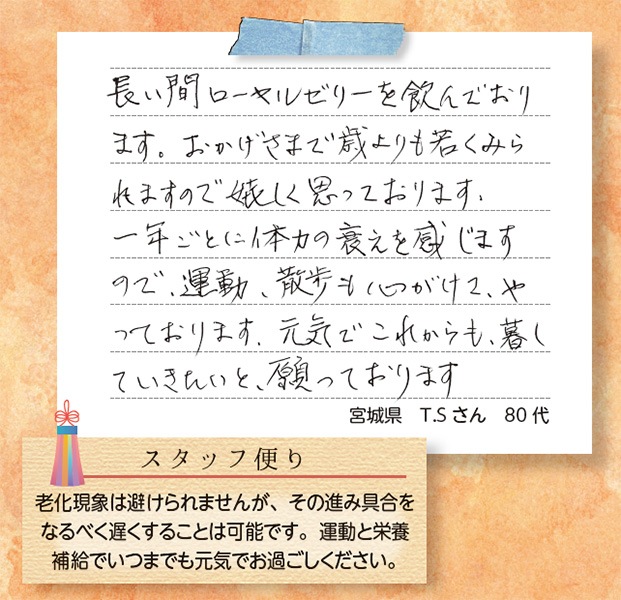 長い間ローヤルゼリーを飲んでおり
ます。おかげさまで歳よりも若くみら
れますので嬉しく思っております、
一年ごとに体力の衰えを感じます
ので、運動、散歩も心がけて、や
っております、元気でこれからも、暮し
ていきたいと、願っております
宮城県 T.Sさん 80代
スタッフ便り
老化現象は避けられませんが、その進み具合を
なるべく遅くすることは可能です。運動と栄養
補給でいつまでも元気でお過ごしください。